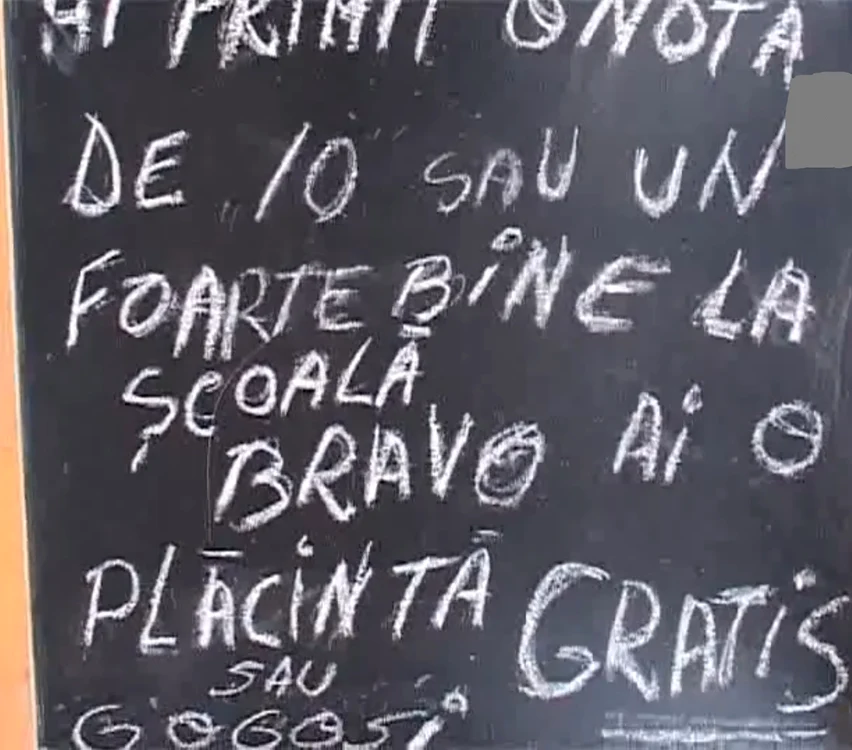 AI PRIMIT O NOTA
DE 10 SAU UN
FOARTE BINE LA
ȘCOALĂ
BRAVO AI O
PLĂCINTĂ GRATIS
SAU
GOGOSI